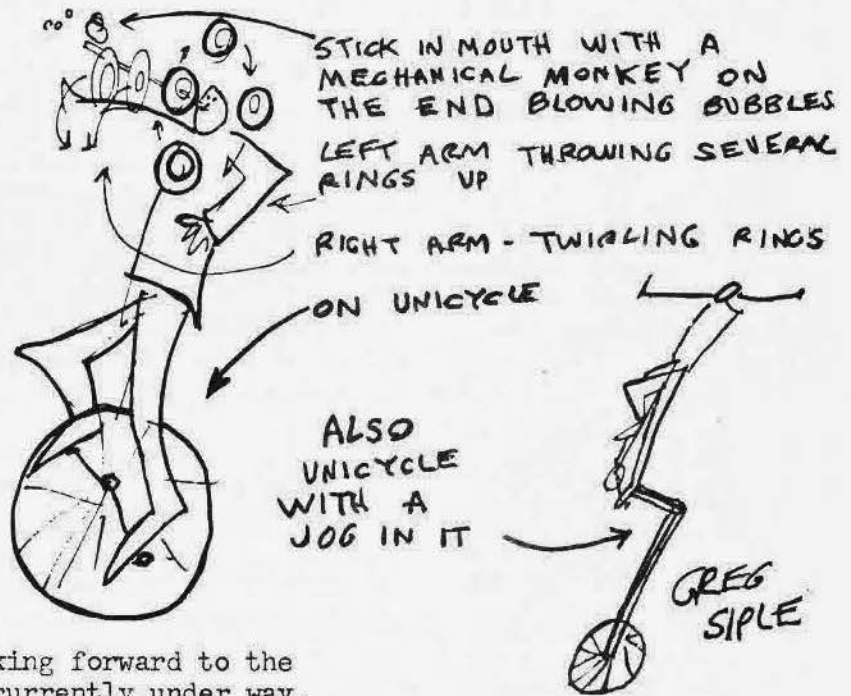 STICK IN MOUTH WITH A
MECHANICAL MONKEY ON
THE END BLOWING BUBBLES
LEFT ARM THROWING SEVERAL
RINGS UP
RIGHT ARM - TWIRLING RINGS
ON UNICYCLE
ALSO
UNICYCLE
WITH A
JOG IN IT
GREG
SIPLE
king forward to the
currently under way.